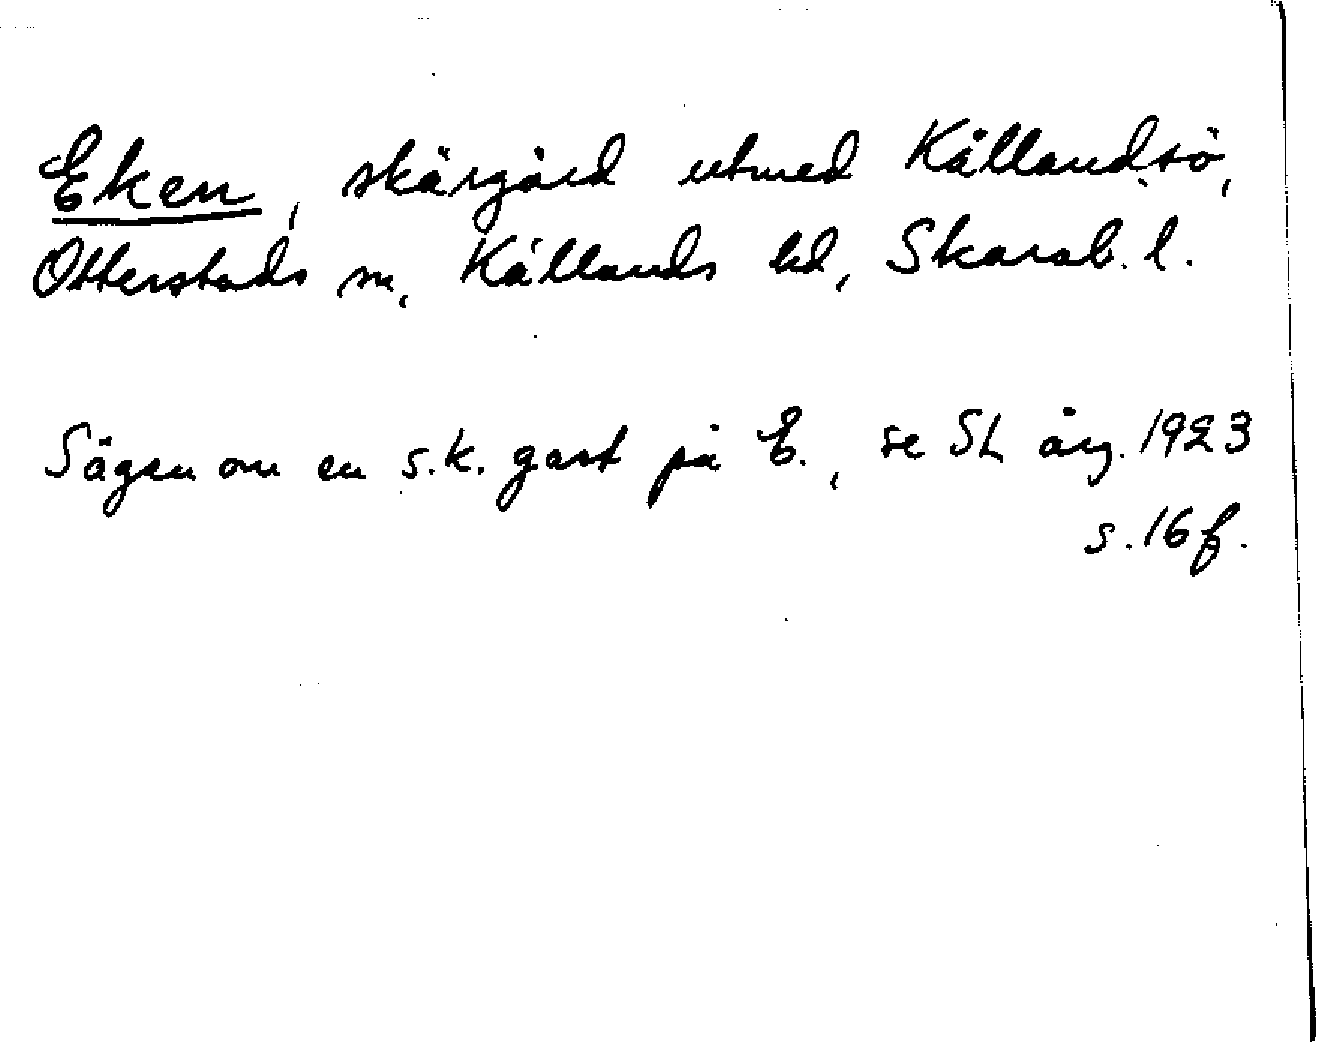 Eken, skärgård utmed Kållandsö,
Otterstads sn, Kållands hd, Skarab. l.
Sägen om en s.k. gast på E., se SL årg. 1923
s. 16 f.